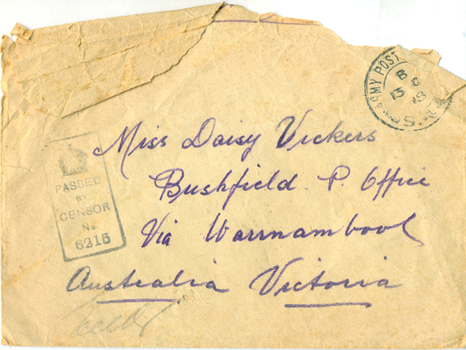 ARMY POST
13
18
PASSED
BY
CENSOR
No
6216
Miss Daisy Vickers
Bushfield P. Office
Via Warrnambool
Australia Victoria